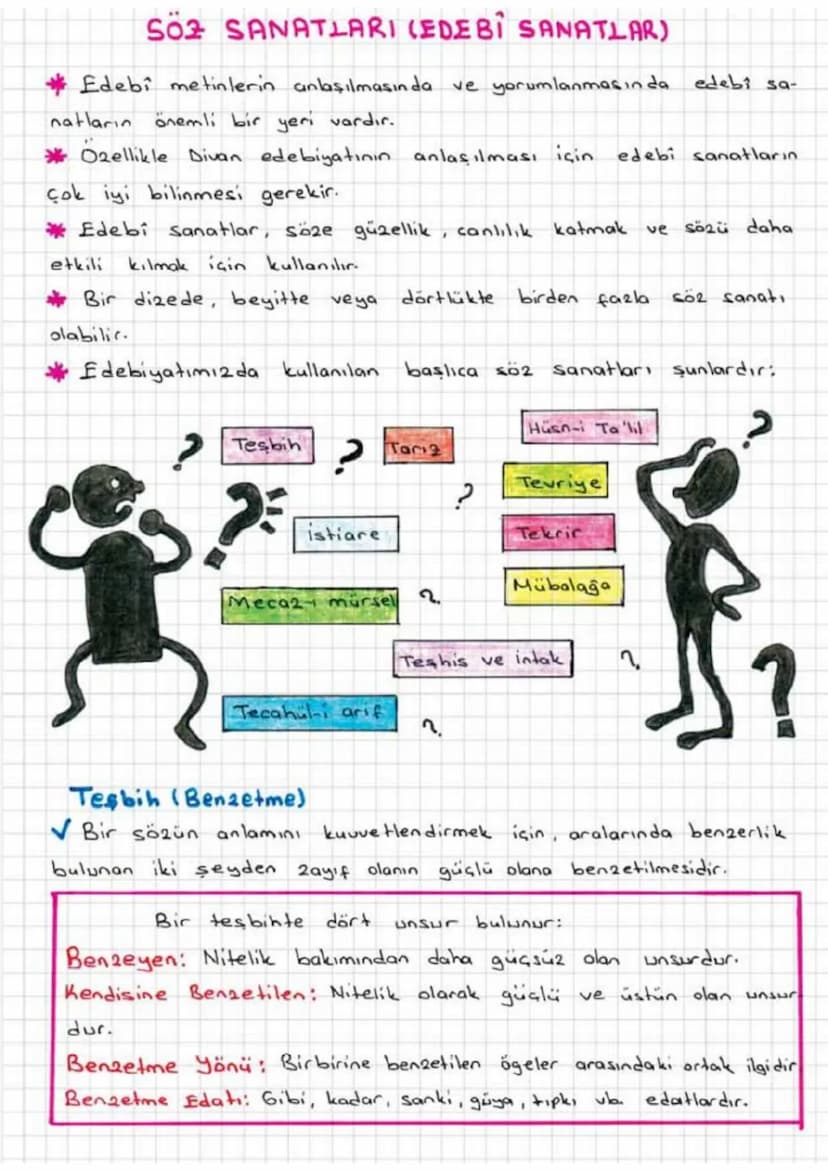 SÖZ SANATLARI (EDEBÎ SANATLAR)
* Edebî metinlerin anlaşılmasında ve yorumlanmasında edebî sa-
natların önemli bir yeri vardır.
* Özellikle Divan edebiyatının anlaşılması için edebî sanatların
çok iyi bilinmesi gerekir.
* Edebî sanatlar, söze güzellik, canlılık katmak ve sözü daha
etkili kılmak için kullanılır.
* Bir dizede, beyitte veya dörtlükte birden fazla söz sanatı
olabilir.
* Edebiyatımızda kullanılan başlıca söz sanatları şunlardır:
Hüsn-i Ta'lil
Teşbih
Tariz
Tevriye
İstiare
Tekrir
Mübalağa
Mecaz-ı mürsel
Teşhis ve intak
Tecahül-i arif
Teşbih (Benzetme)
✓ Bir sözün anlamını kuvvetlendirmek için, aralarında benzerlik
bulunan iki şeyden zayıf olanın güçlü olana benzetilmesidir.
Bir teşbihte dört unsur bulunur:
Benzeyen: Nitelik bakımından daha güçsüz olan unsurdur.
Kendisine Benzetilen: Nitelik olarak güçlü ve üstün olan unsur
dur.
Benzetme Yönü: Birbirine benzetilen ögeler arasındaki ortak ilgidir
Benzetme Edatı: Gibi, kadar, sanki, güya, tıpkı vb. edatlardır.